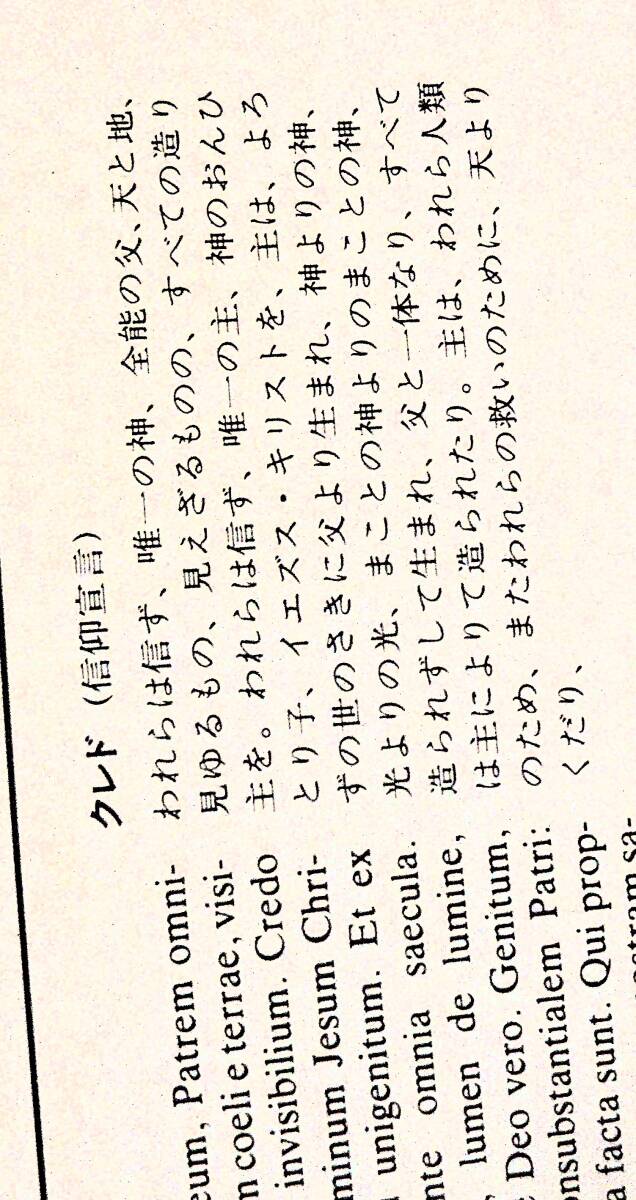 eum, Patrem omni-
m coeli e terrae, visi-
invisibilium. Credo
minum Jesum Chri-
unigenitum. Et ex
nte omnia saecula.
lumen de lumine,
Deo vero. Genitum,
nsubstantialem Patri:
a facta sunt. Qui prop-
sa-
クレド（信仰宣言）
われらは信ず、唯一の神、全能の父、天と地、
見ゆるもの、見えざるものの、すべての造り
主を。われらは信ず、唯一の主、神のおんひ
とり子、イエズス・キリストを、主は、よろ
ずの世のさきに父より生まれ、神よりの神、
光よりの光、まことの神よりのまことの神、
造られずして生まれ、父と一体なり、すべて
は主によりて造られたり。主は、われら人類
のため、またわれらの救いのために、天より
くだり、